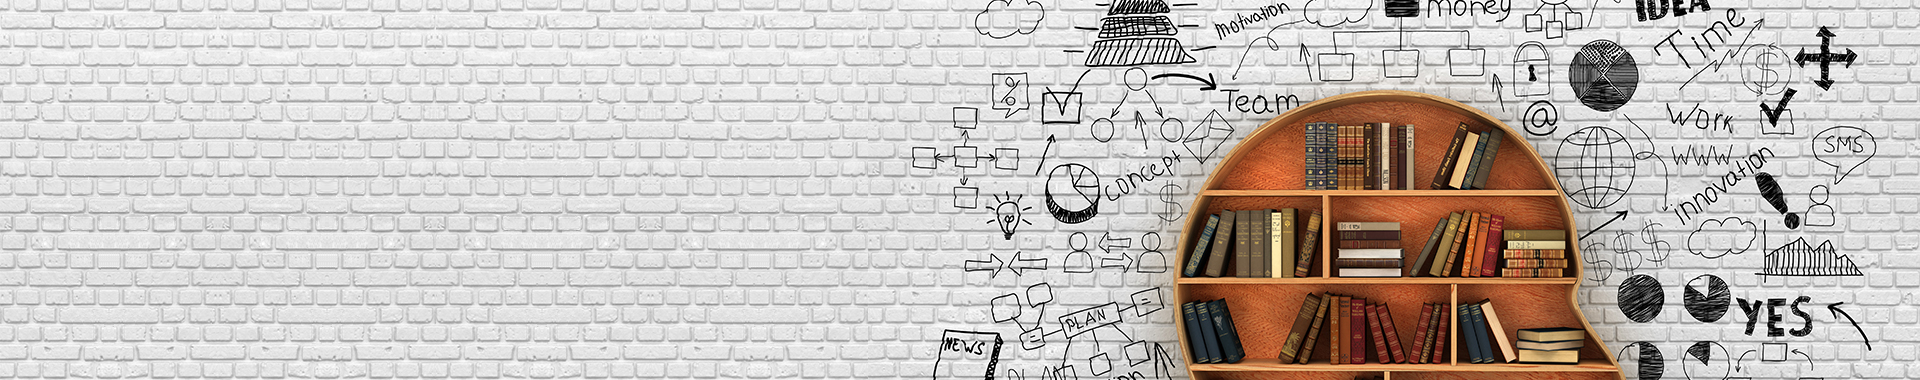 motivation
money
IDEA
Time
$
%
Team
@
Work
SMS
concept
www
innovation
$
$ $ $
PLAN
YES
NEWS
PLAN